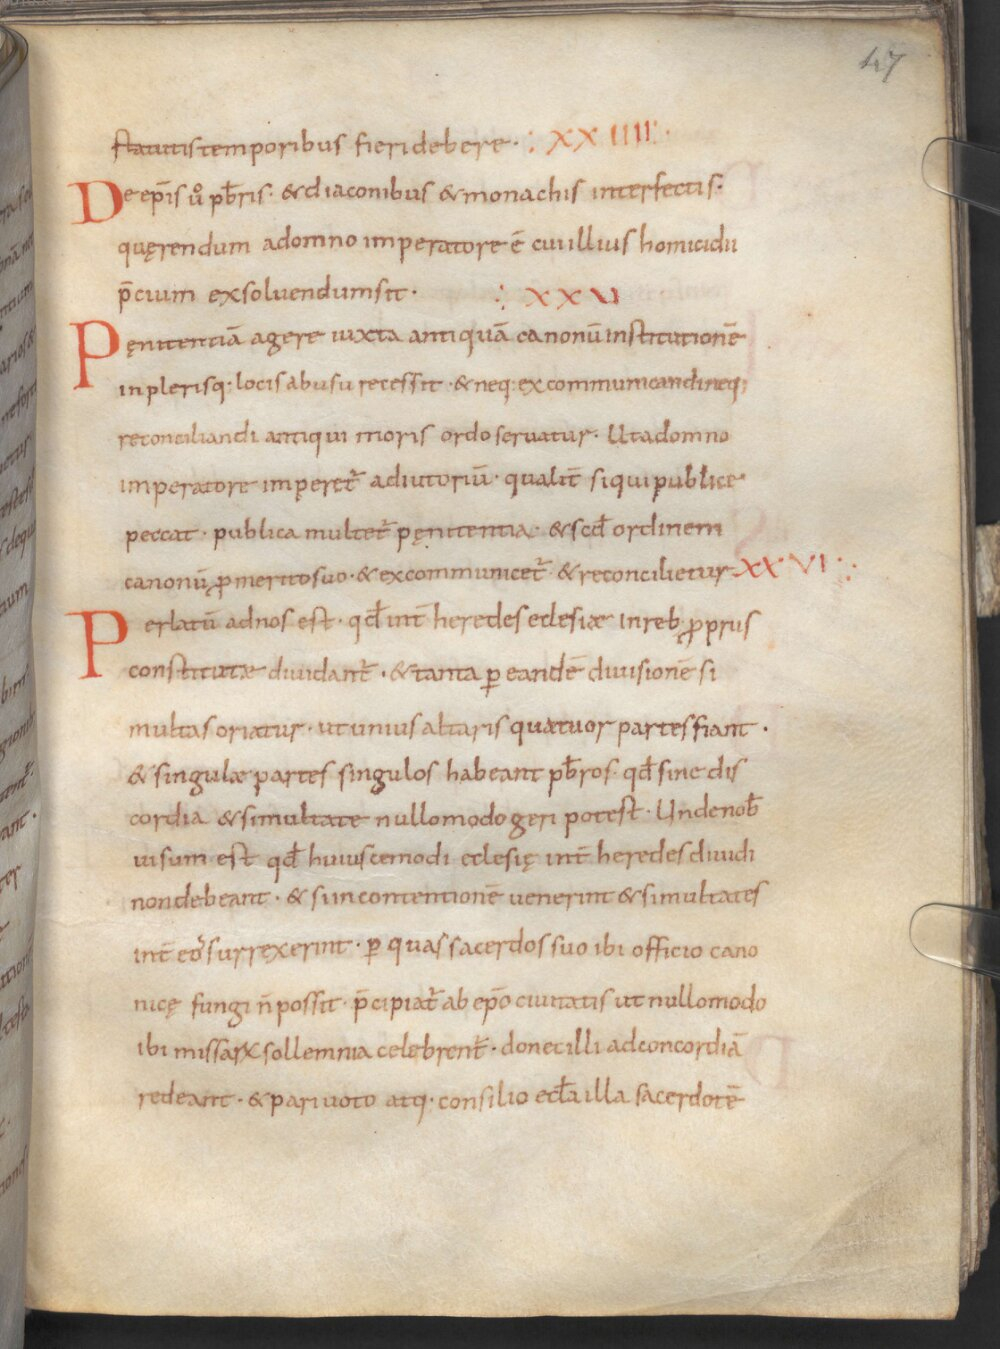 47
statutis temporibus fieri debere · ·: XXIIII:·
De ep̄is ů pb̄ris · & diaconibus & monachis interfectis ·
quęrendum a domno imperatore ē cui illius homicidii
p̄cium exsoluendum sit · ·: XXV
Pęnitentiā agere iuxta antiquā canonū institutionē
in plerisq; locis ab usu recessit · & neq; excommunicandi neq;
reconciliandi antiqui moris ordo seruatur · Ut a domno
imperatore imperet᷑ adiutoriū · qualit̄ si qui publice
peccat · publica multet᷑ pęnitentia · & scd̄ ordinem
canonū ꝓ merito suo · & excommunicet᷑ & reconcilietur XXVI·:·
Perlatū ad nos est · qd̄ int̄ heredes eclesiæ in reb; ꝓpriis
constitutæ diuidant᷑ · & tanta ꝑ eandē diuisionē si
multas oriatur · ut unius altaris quatuor partes fiant ·
& singulæ partes singulos habeant pb̄ros · qd̄ sine dis
cordia & simultate nullo modo geri potest · Unde nob̄
uisum est qd̄ huiuscemodi eclesię int̄ heredes diuidi
non debeant · & si in contentionē uenerint & simultates
int̄ eos surrexerint · ꝑ quas sacerdos suo ibi officio cano
nicę fungi n̄ possit · p̄cipiat᷑ ab ep̄o ciuitatis ut nullo modo
ibi missaꝝ sollemnia celebrent᷑ · donec illi ad concordiā
redeant · & pari uoto atq; consilio ecl̄a illa sacerdotē